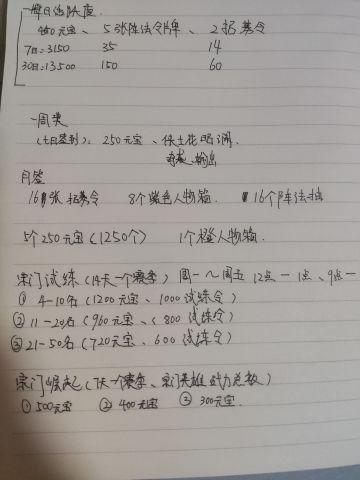 一每日活跃度.
450元宝、5张阵法令牌、2招募令
7日=3150 35 14
30日=13500 150 60
一周类
(七日签到): 250元宝、
输出
月签
16张招募令 8个紫色人物箱. 16个阵法
5个250元宝(1250个) 1个橙人物箱.
宗门试练(14天一个赛季) 周一~周五 12点-1点、9点-
① 4-10名(1200元宝、1000试练令)
② 11-20名(960元宝、(800试练令)
③ 21-50名(720元宝、600试练令)
宗门崛起(7天一个赛季、宗门英雄战力总数)
① 500元宝 ② 400元宝 ③ 300元宝.